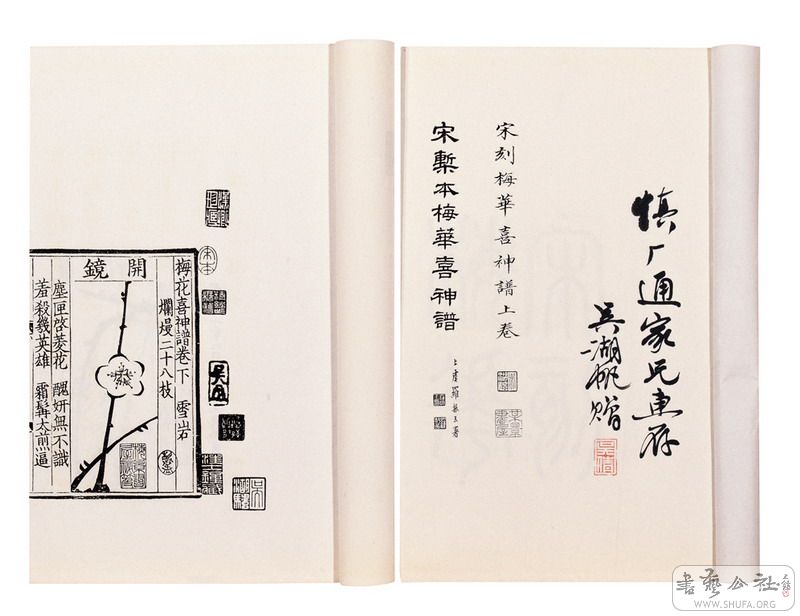 慎厂通家兄惠存
吴湖帆贈
宋刻梅華喜神譜上卷
宋槧本梅華喜神譜
上虞羅振玉署
梅花喜神譜卷下　雪岩
爛熳二十八枝
開鏡
塵匣啓菱花　醜妍無不識
羞殺幾英雄　霜髯太煎逼
宋本
書藝公社
WWW.SHUFA.ORG